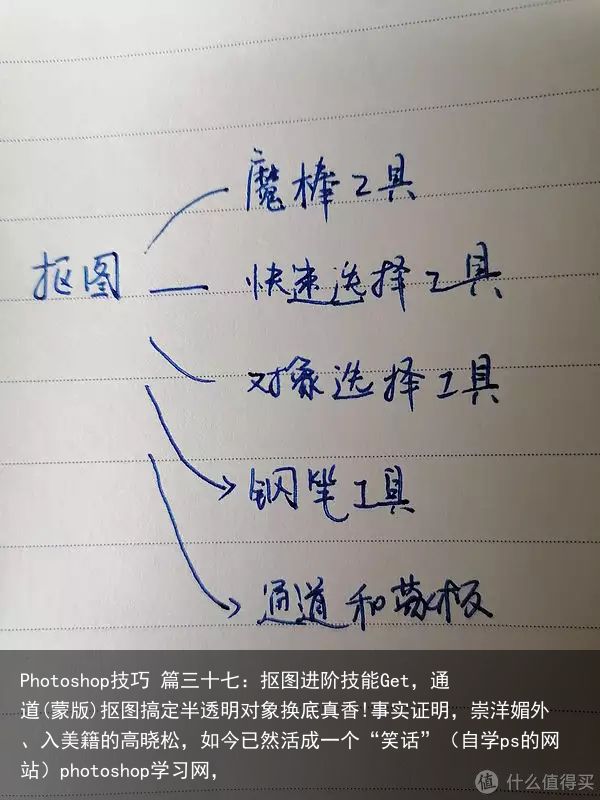 魔棒工具
抠图
快速选择工具
对象选择工具
钢笔工具
通道和蒙板
Photoshop技巧 篇三十七：抠图进阶技能Get，通
道(蒙版)抠图搞定半透明对象换底真香!事实证明，崇洋媚外
、入美籍的高晓松，如今已然活成一个“笑话”（自学ps的网
站）photoshop学习网，
值 什么值得买